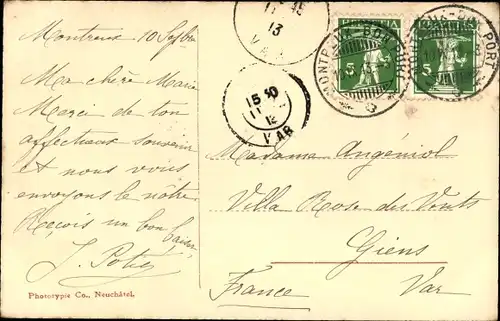 Montreux 10 Septbre
Ma chère Marie
Merci de ton
affectueux souvenir
et nous vous
envoyons le nôtre
Reçois un bon baiser
J.
Phototypie Co., Neuchâtel.
13
VAR
15 50
11
VAR
MONTREUX-BON PORT
HELVETIA
5
5
Madame Angéniol
Villa Rose des Vents
Giens
France Var